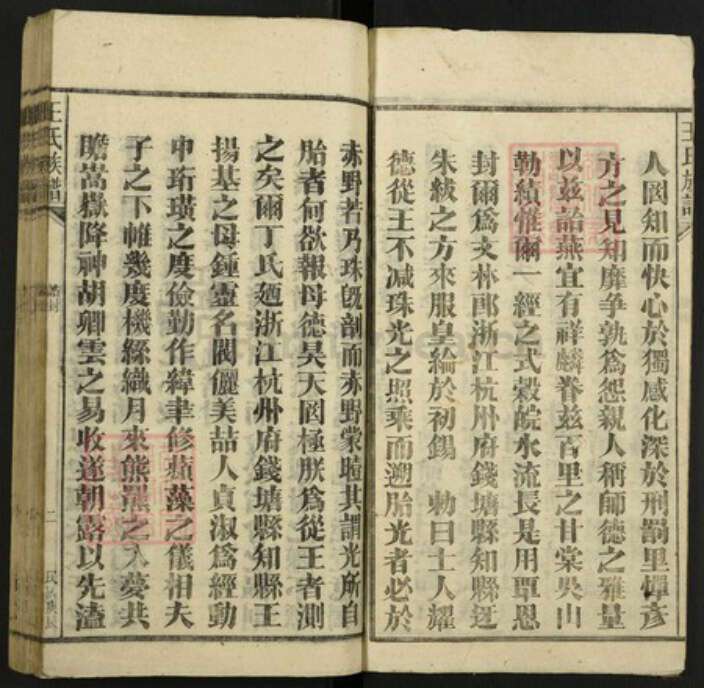 人罔知而快心於獨感化深於刑罰里憚彦
方之見知靡爭孰為怨親人稱師德之雅量
以玆詒燕宜有祥麟眷玆百里之甘棠吳山
勒績惟爾一經之式穀皖水流長是用覃恩
封爾爲文林郎浙江杭州府錢塘縣知縣迓
朱紱之方來服皇綸於初錫 勅曰士人耀
德從王不減珠光之照乘而遡胎光者必於
赤野若乃珠旣剖而赤野蒙曀其謂光所自
胎者何欲報母德昊天罔極朕爲從王者測
之矣爾丁氏廼浙江杭州府錢塘縣知縣王
揚基之母鍾靈名閥儷美喆人貞淑爲經動
中珩璜之度儉勤作緯聿修蘋藻之儀相夫
子之下帷幾度機絲織月來熊羆之入夢共
瞻嵩嶽降神胡卿雲之易收遂朝露以先溘
王氏族譜
王氏族譜
誥封
二